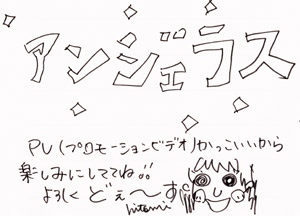 アンジェラス
PV(プロモーションビデオ)かっこいいから
楽しみにしててね!!
よろしく どえ〜す。
hitomi